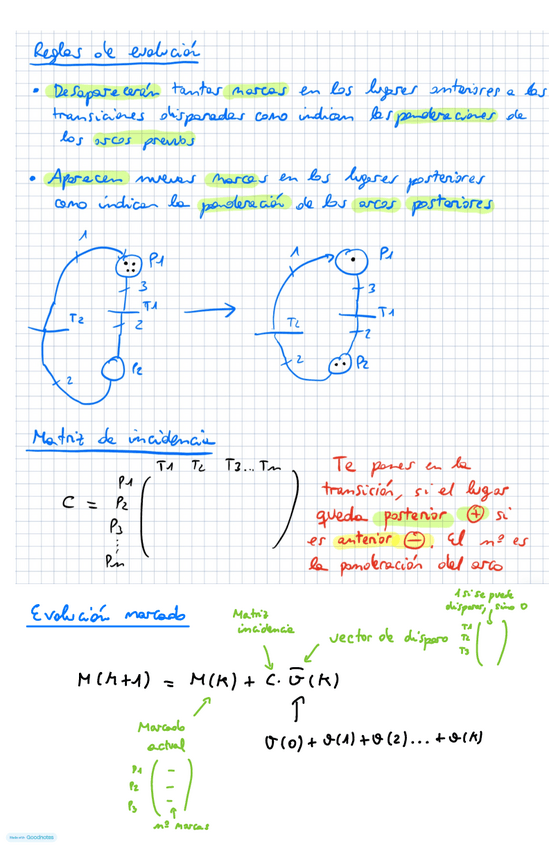 Reglas de evolución
• Desaparecerán tantas marcas en los lugares anteriores a las
transiciones disparadas como indican las ponderaciones de
los arcos previos
• Aparecen nuevas marcas en los lugares posteriores
como indican la ponderación de los arcos posteriores
1 P1
3
T2 T1
2
P2
2
1 P1
3
T2 T1
2
2 P2
Matriz de incidencia
T1 T2 T3...Tn
P1
C = P2
P3
Pn
Te pones en la
transición, si el lugar
queda posterior + si
es anterior -. El nº es
la ponderación del arco
Evolución marcado
Matriz
incidencia
vector de disparo
1 si se puede
disparar, sino 0
T1
T2
T3
M(k+1) = M(k) + C · σ̄(k)
σ(0) + σ(1) + σ(2) ... + σ(k)
Marcado
actual
P1 –
P2 –
P3 –
nº marcas
Made with Goodnotes